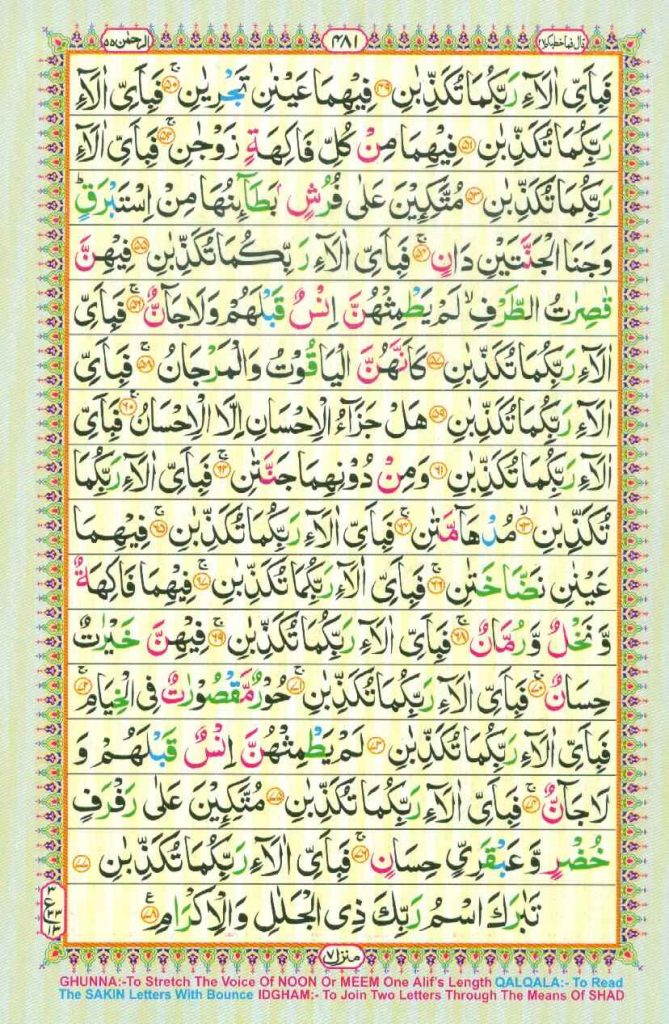 قال فما خطبكم ٢٧
٤٨١
الرحمٰن ٥٥
فَبِاَیِّ اٰلَآءِ رَبِّكُمَا تُكَذِّبٰنِ ﴿۴۹﴾ فِیْهِمَا عَیْنٰنِ تَجْرِیٰنِ ۚ﴿۵۰﴾ فَبِاَیِّ اٰلَآءِ
رَبِّكُمَا تُكَذِّبٰنِ ﴿۵۱﴾ فِیْهِمَا مِنْ كُلِّ فَاكِهَةٍ زَوْجٰنِ ۚ﴿۵۲﴾ فَبِاَیِّ اٰلَآءِ
رَبِّكُمَا تُكَذِّبٰنِ ﴿۵۳﴾ مُتَّكِـِٕیْنَ عَلٰی فُرُشٍۭ بَطَآىِٕنُهَا مِنْ اِسْتَبْرَقٍ ؕ
وَ جَنَا الْجَنَّتَیْنِ دَانٍ ۚ﴿۵۴﴾ فَبِاَیِّ اٰلَآءِ رَبِّكُمَا تُكَذِّبٰنِ ﴿۵۵﴾ فِیْهِنَّ
قٰصِرٰتُ الطَّرْفِ ۙ لَمْ یَطْمِثْهُنَّ اِنْسٌ قَبْلَهُمْ وَ لَا جَآنٌّ ۚ﴿۵۶﴾ فَبِاَیِّ
اٰلَآءِ رَبِّكُمَا تُكَذِّبٰنِ ﴿۵۷﴾ كَاَنَّهُنَّ الْیَاقُوْتُ وَ الْمَرْجَانُ ۚ﴿۵۸﴾ فَبِاَیِّ
اٰلَآءِ رَبِّكُمَا تُكَذِّبٰنِ ﴿۵۹﴾ هَلْ جَزَآءُ الْاِحْسَانِ اِلَّا الْاِحْسَانُ ۚ﴿۶۰﴾ فَبِاَیِّ
اٰلَآءِ رَبِّكُمَا تُكَذِّبٰنِ ﴿۶۱﴾ وَ مِنْ دُوْنِهِمَا جَنَّتٰنِ ۚ﴿۶۲﴾ فَبِاَیِّ اٰلَآءِ رَبِّكُمَا
تُكَذِّبٰنِ ﴿۶۳﴾ۙ مُدْهَآمَّتٰنِ ۚ﴿۶۴﴾ فَبِاَیِّ اٰلَآءِ رَبِّكُمَا تُكَذِّبٰنِ ۚ﴿۶۵﴾ فِیْهِمَا
عَیْنٰنِ نَضَّاخَتٰنِ ۚ﴿۶۶﴾ فَبِاَیِّ اٰلَآءِ رَبِّكُمَا تُكَذِّبٰنِ ۚ﴿۶۷﴾ فِیْهِمَا فَاكِهَةٌ
وَّ نَخْلٌ وَّ رُمَّانٌ ۚ﴿۶۸﴾ فَبِاَیِّ اٰلَآءِ رَبِّكُمَا تُكَذِّبٰنِ ۚ﴿۶۹﴾ فِیْهِنَّ خَیْرٰتٌ
حِسَانٌ ۚ﴿۷۰﴾ فَبِاَیِّ اٰلَآءِ رَبِّكُمَا تُكَذِّبٰنِ ۚ﴿۷۱﴾ حُوْرٌ مَّقْصُوْرٰتٌ فِی الْخِیَامِ ۚ﴿۷۲﴾
فَبِاَیِّ اٰلَآءِ رَبِّكُمَا تُكَذِّبٰنِ ۚ﴿۷۳﴾ لَمْ یَطْمِثْهُنَّ اِنْسٌ قَبْلَهُمْ وَ
لَا جَآنٌّ ۚ﴿۷۴﴾ فَبِاَیِّ اٰلَآءِ رَبِّكُمَا تُكَذِّبٰنِ ۚ﴿۷۵﴾ مُتَّكِـِٕیْنَ عَلٰی رَفْرَفٍ
خُضْرٍ وَّ عَبْقَرِیٍّ حِسَانٍ ۚ﴿۷۶﴾ فَبِاَیِّ اٰلَآءِ رَبِّكُمَا تُكَذِّبٰنِ ﴿۷۷﴾
تَبٰرَكَ اسْمُ رَبِّكَ ذِی الْجَلٰلِ وَ الْاِكْرَامِ ﴿۷۸﴾
٣
ع
٣٣
١٣
منزل ٧
GHUNNA:-To Stretch The Voice Of NOON Or MEEM One Alif's Length QALQALA:- To Read
The SAKIN Letters With Bounce IDGHAM:- To Join Two Letters Through The Means Of SHAD